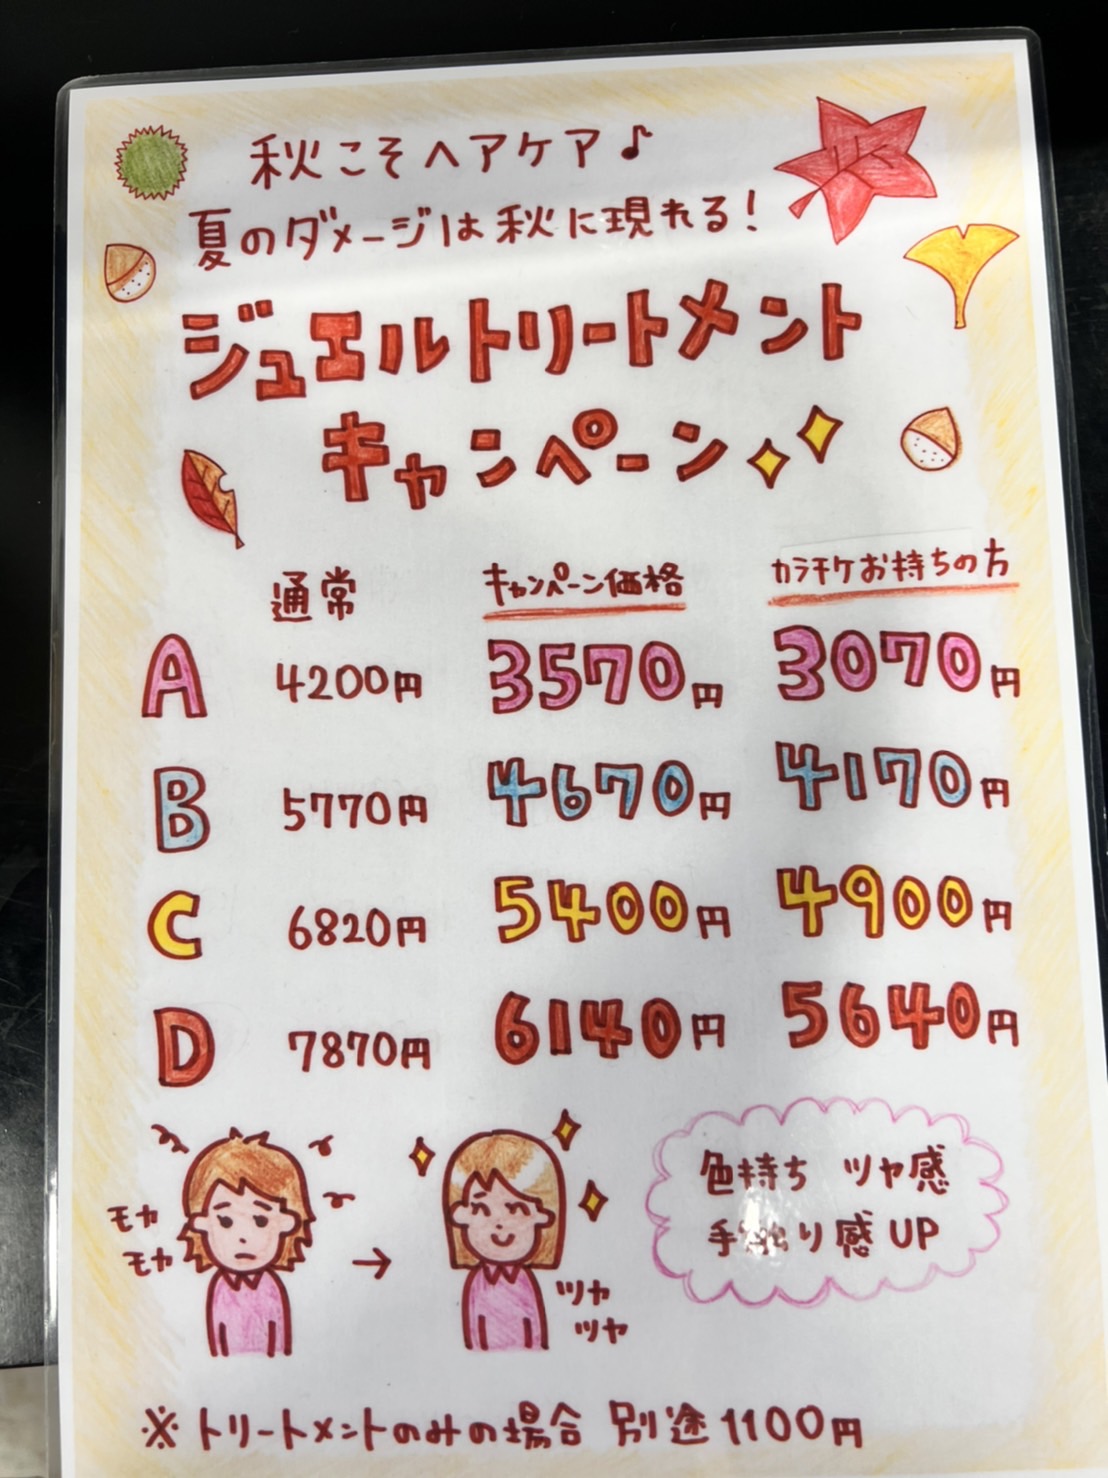 秋こそヘアケア♪
夏のダメージは秋に現れる!
ジュエルトリートメント
キャンペーン
通常 キャンペーン価格 カラチケお持ちの方
A 4200円 3570円 3070円
B 5770円 4670円 4170円
C 6820円 5400円 4900円
D 7870円 6140円 5640円
モカ
モカ
→
ツヤ
ツヤ
色持ち ツヤ感
手触り感UP
※トリートメントのみの場合 別途1100円